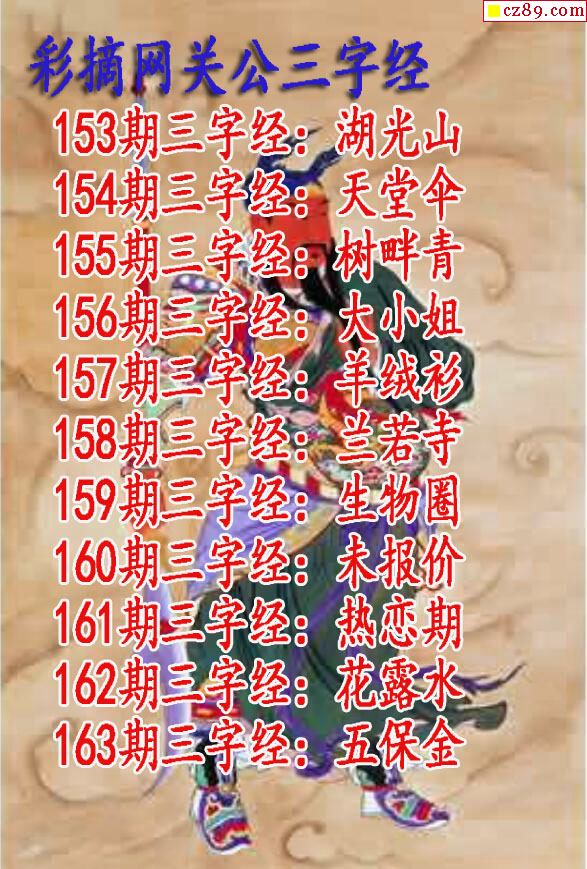 cz89.com
彩摘网关公三字经
153期三字经：湖光山
154期三字经：天堂伞
155期三字经：树畔青
156期三字经：大小姐
157期三字经：羊绒衫
158期三字经：兰若寺
159期三字经：生物圈
160期三字经：未报价
161期三字经：热恋期
162期三字经：花露水
163期三字经：五保金